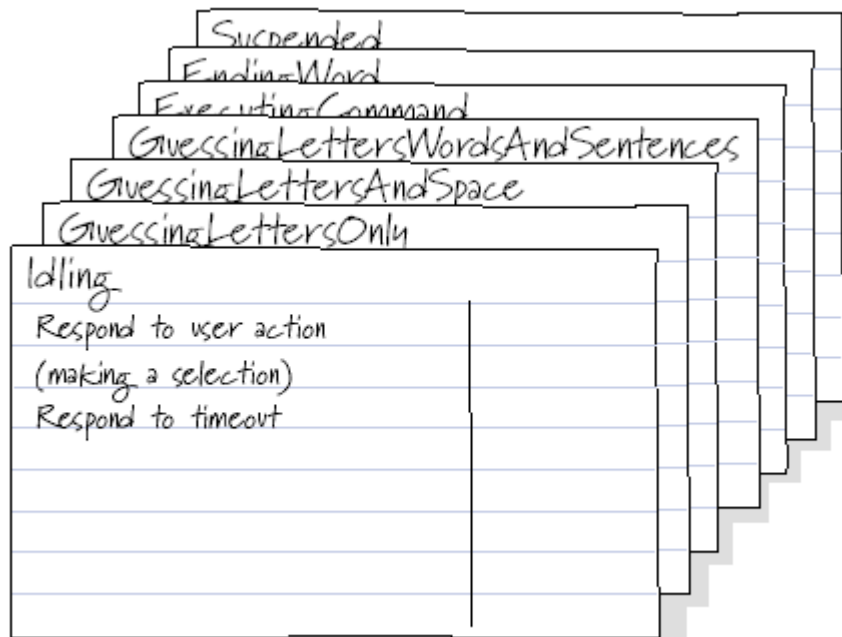 Suspended
EndingWord
ExecutingCommand
GuessingLettersWordsAndSentences
GuessingLettersAndSpace
GuessingLettersOnly
Idling
Respond to user action
(making a selection)
Respond to timeout